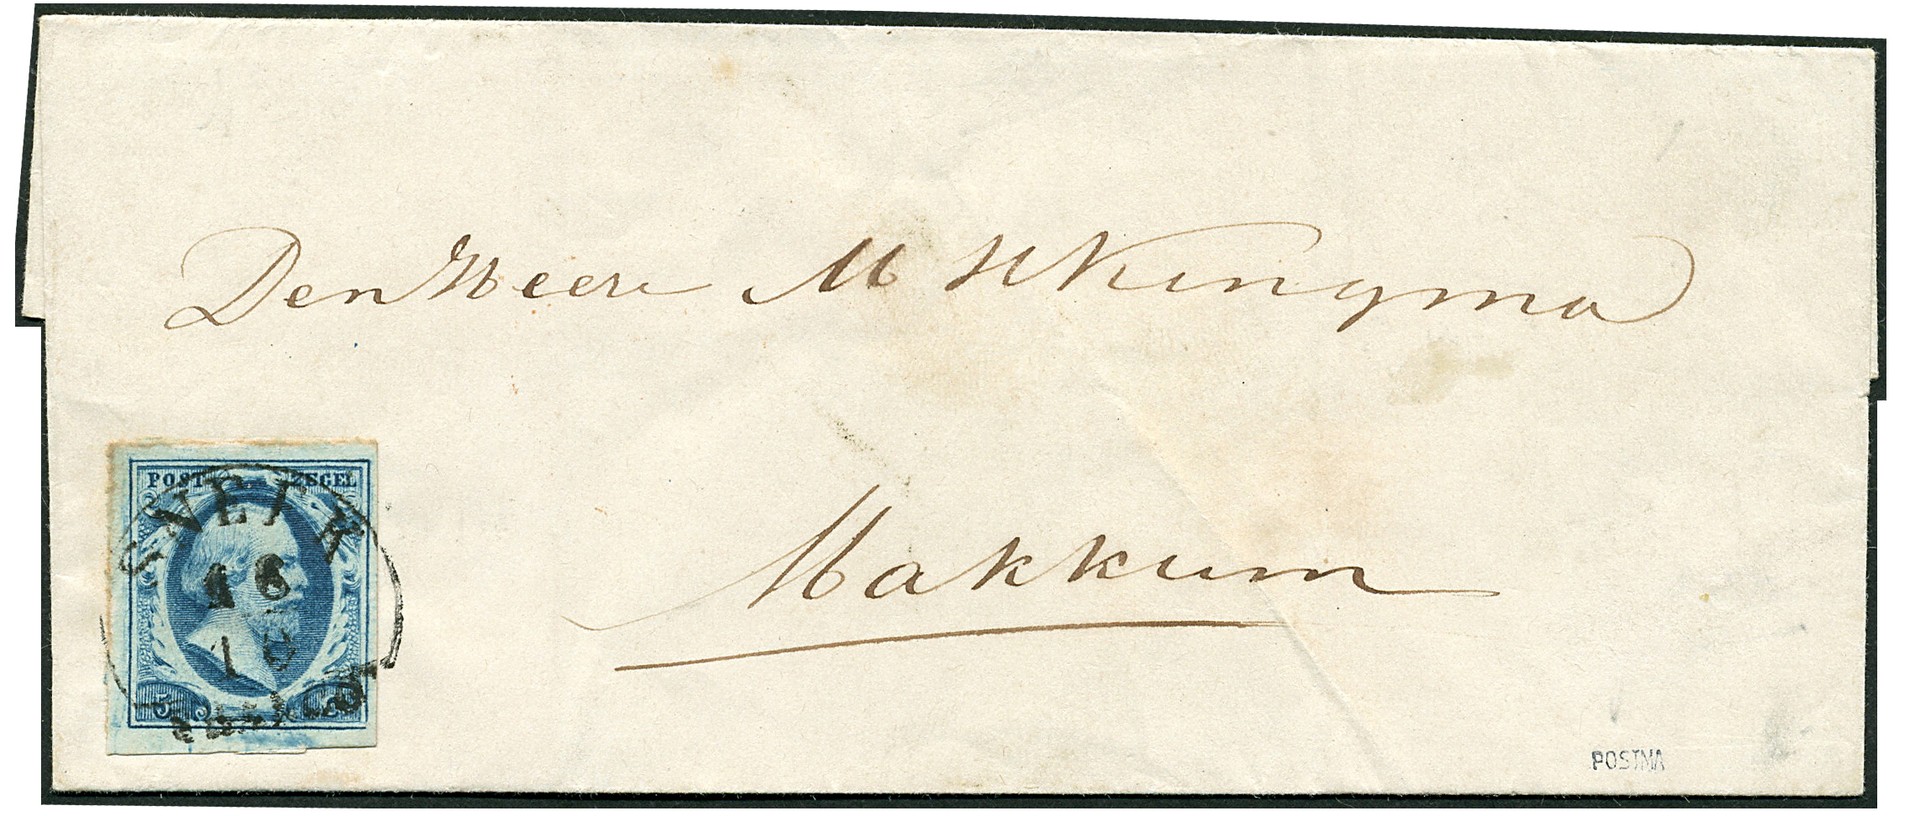 Den Heere M H Kingma
Makkum
POSTZEGEL
SNEEK
5
POSTMA